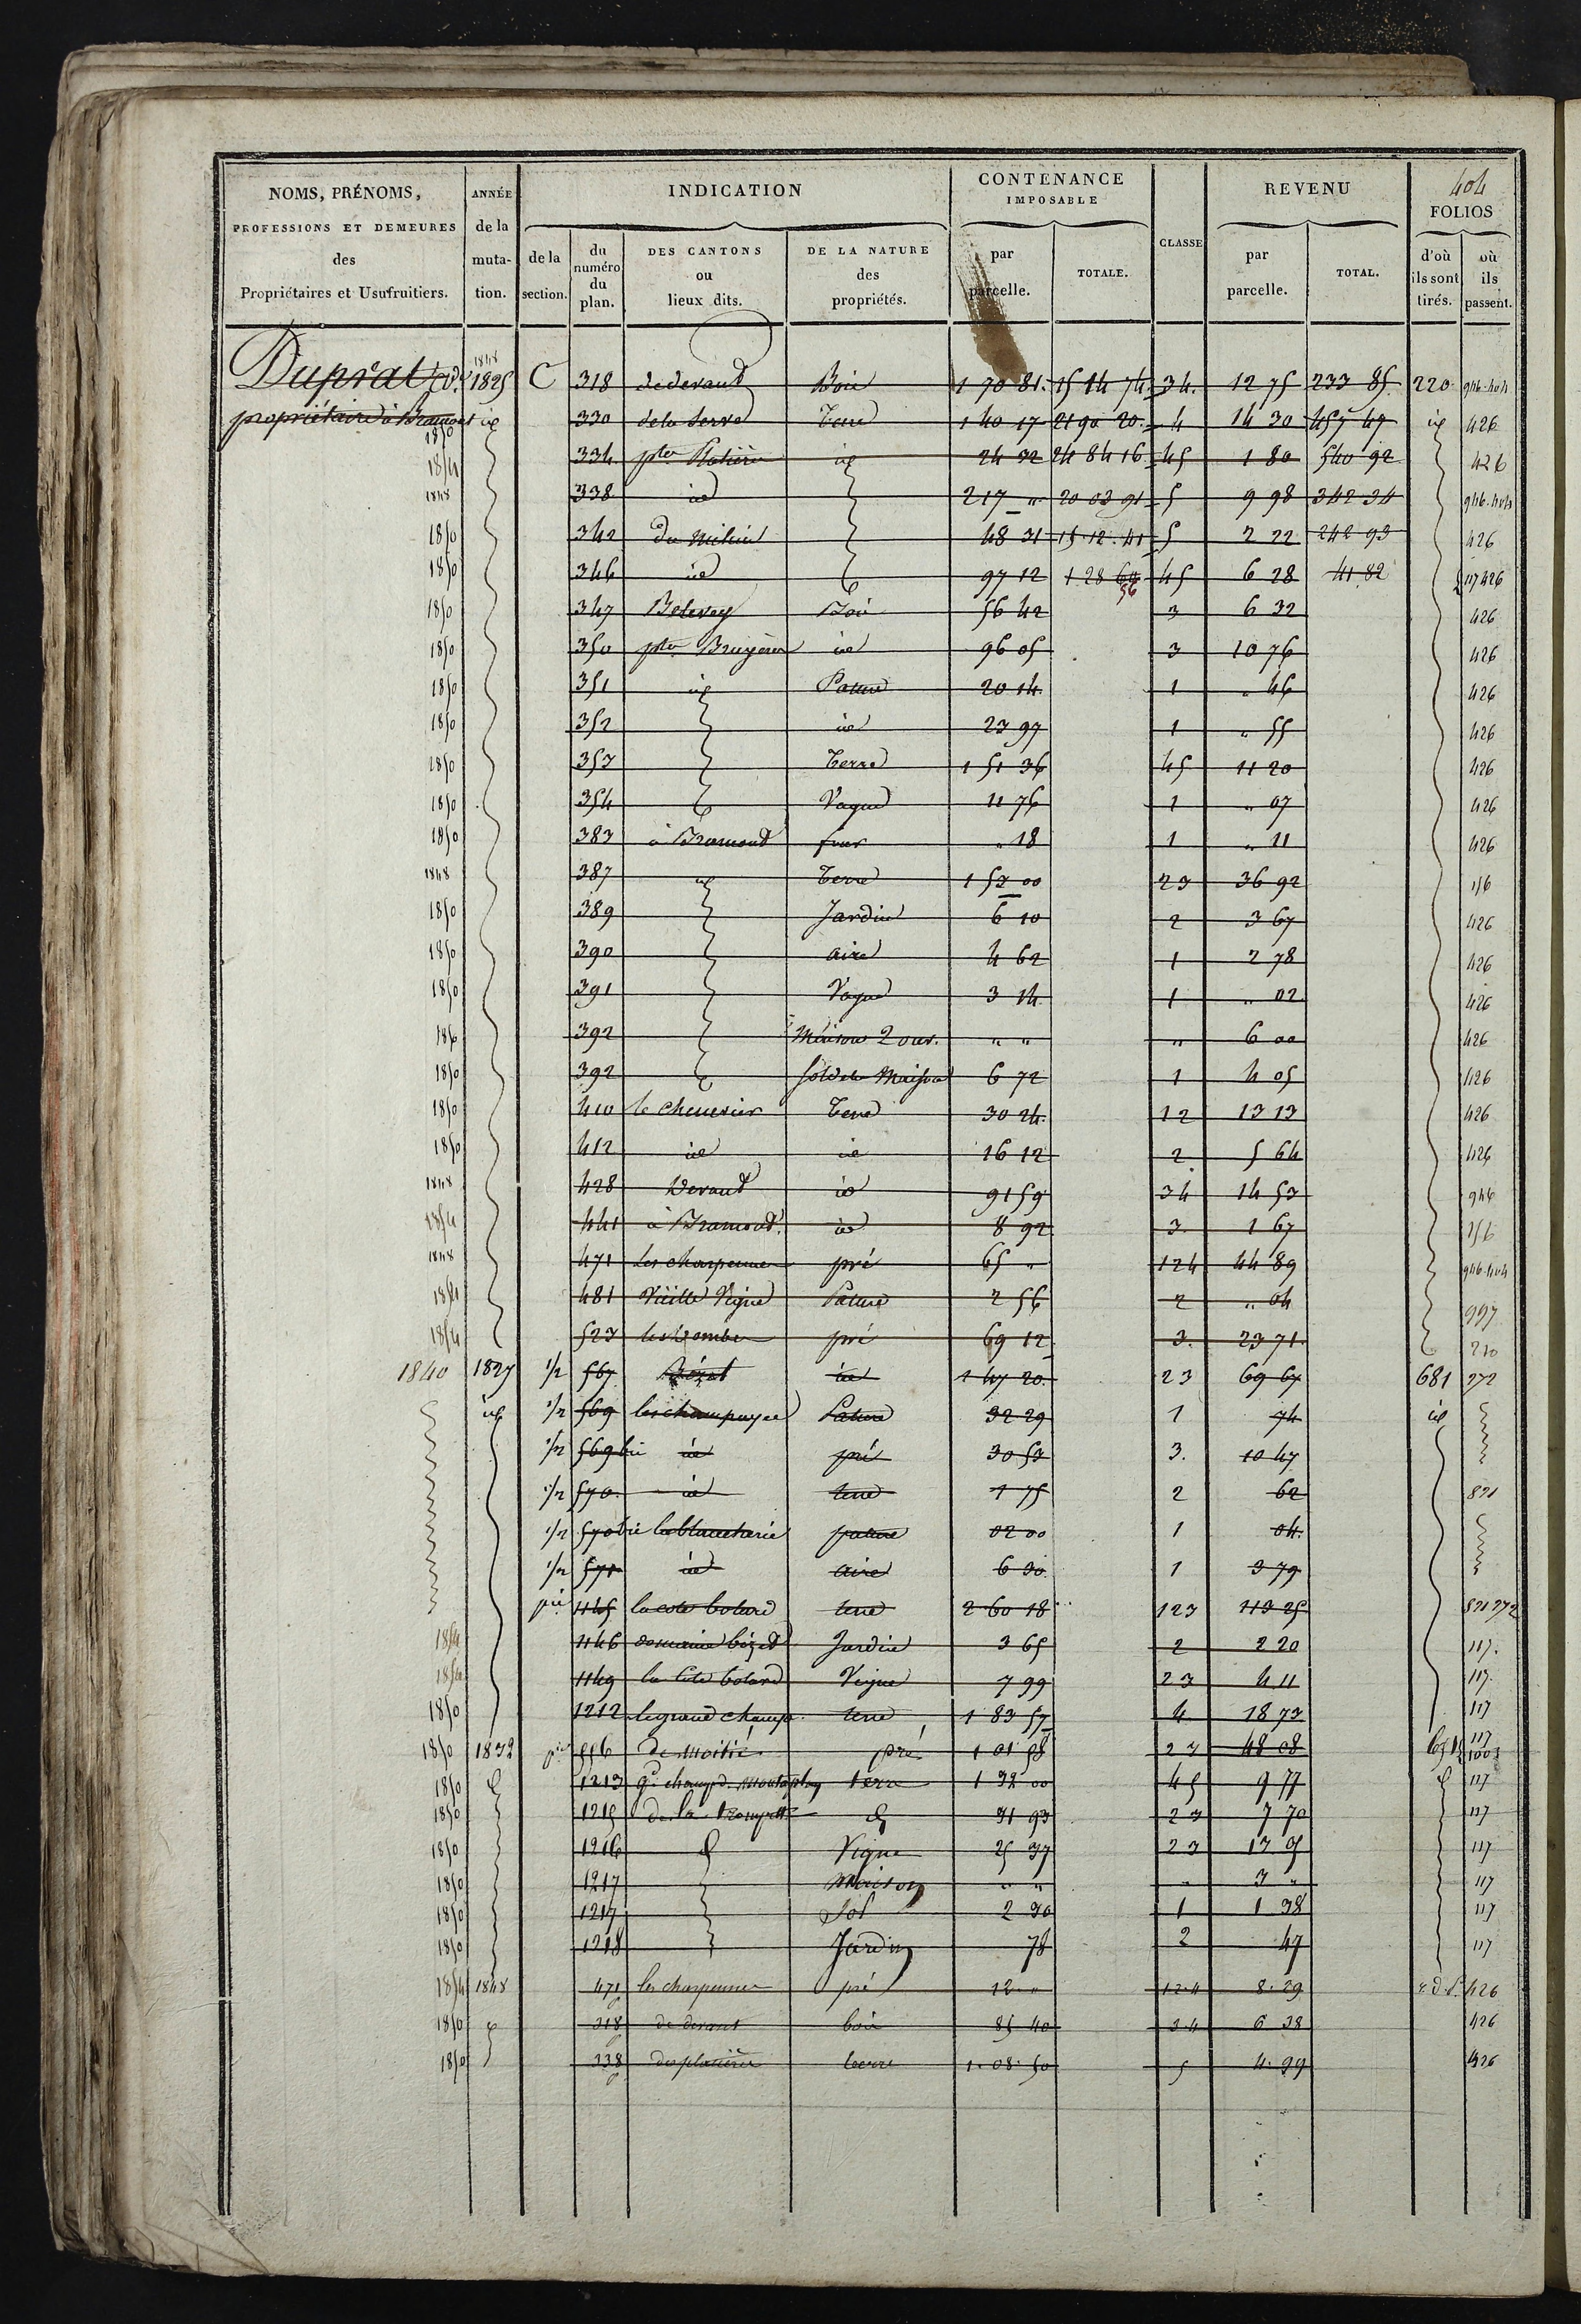 404
NOMS, PRÉNOMS, PROFESSIONS ET DEMEURES des Propriétaires et Usufruitiers.
ANNÉE de la muta-tion.
INDICATION
de la section.
du numéro du plan.
DES CANTONS ou lieux dits.
DE LA NATURE des propriétés.
CONTENANCE IMPOSABLE
par parcelle.
TOTALE.
CLASSE
REVENU
par parcelle.
TOTAL.
FOLIOS
d'où ils sont tirés.
où ils passent.
Duprat
propriétaire à Bramont
1848 1825 C 318 de devant Bois 1 70 81. 15 14 74 34. 12 75 233 85 220 946.404
1850 id 330 de la Serve Terre 1 40 17 21 90 20 4 14 30 457 47 id 426
1854 334 ptes Platières id 24 32 24 84 16 45 1 80 540 92 426
1848 338 id 2 17 " 20 03 91 5 9 98 342 34 946.404
1850 342 du milieu 48 31 15.12.41 5 2 22 242 93 426
1850 346 id 97 12 1 28 60 56 45 6 28 41 82 117 426
1850 347 Bois 56 42 3 6 32 426
1850 350 ptes Bruyères id 96 05 3 10 76 426
1850 351 id Pature 20 14 1 " 46 426
1850 352 id 23 97 1 " 55 426
1850 353 Terre 1 51 36 45 11 20 426
1850 354 Vague 11 76 1 " 07 426
1850 383 à Bramond four " 18 1 " 11 426
1848 387 id Terre 1 53 00 23 36 92 156
1850 389 Jardin 6 10 2 3 67 426
1850 390 aire 4 62 1 2 78 426
1850 391 Vague 3 14 1 " 02 426
1850 392 Maison 2 ouv. " " " 6 00 426
1850 392 sol de la Maison 6 72 1 4 05 426
1850 410 le chenevier Terre 30 24 12 13 13 426
1850 412 id id 16 12 2 5 64 426
1848 428 Devant id 91 59 34 14 53 946
1854 441 à Bramond id 8 92 3 1 67 156
1848 471 les charpennes pré 65 " 124 44 89 946.404
1854 481 Vieille Vigne Pature 2 56 2 " 04 997
1854 523 les Combes pré 69 12 3. 23 71. 210
1840 1827 1/2 567 Bézat id 1 47 20 23 69 67 681 272
id 1/2 569 les champagne Pature 32 29 1 74 id
1/2 569 bis id pré 30 53 3. 10 47
1/2 570 id terre 1 75 2 62 821
1/2 570 bis la blancherie pature 02 00 1 04
1/2 571 id aire 6 30 1 3 79
pie 1145 la cote bolard terre 2 60 18 123 113 25 821 272
1854 1146 domaine bézet Jardin 3 65 2 2 20 117
1854 1149 la Cote bolard Vigne 7 99 23 4 11 117
1850 1212 le grand champ terre 1 83 57 4 18 73 117
1850 1832 pie 556 de moitié pré 1 01 58 23 48 08 117 1003
1850 1213 gd champ de terre 1 32 00 45 9 77 117
1850 1215 de la d 31 93 23 7 70 117
1850 1216 d Vigne 25 37 23 13 05 117
1850 1217 Maison " " " 3 " 117
1850 1217 Sol 2 30 1 1 38 117
1850 1218 Jardin 78 2 47 117
1854 1848 471 les charpennes pré 12 " 12.4 8.29 426
1850 318 de devant bois 85 40 34 6 38 426
1850 338 des platières terre 1.08.50 5 4.99 426